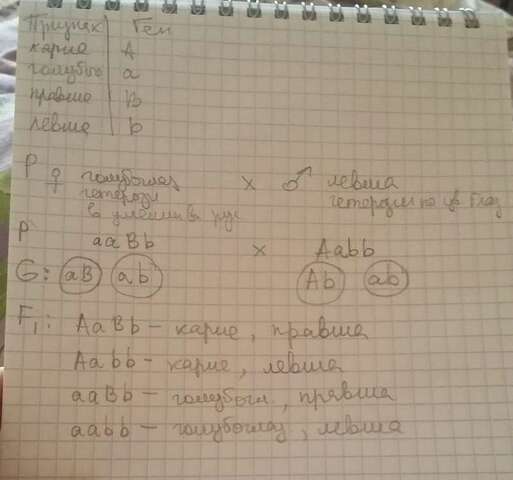 Признак | Ген
карие | A
голубые | a
правша | B
левша | b
P ♀ голубоглаз × ♂ левша
гетероз гетерозиг по цв глаз
P aaBb × Aabb
G: aB ab Ab ab
F₁: AaBb – карие, правша
Aabb – карие, левша
aaBb – голубогл, правша
aabb – голубоглаз, левша